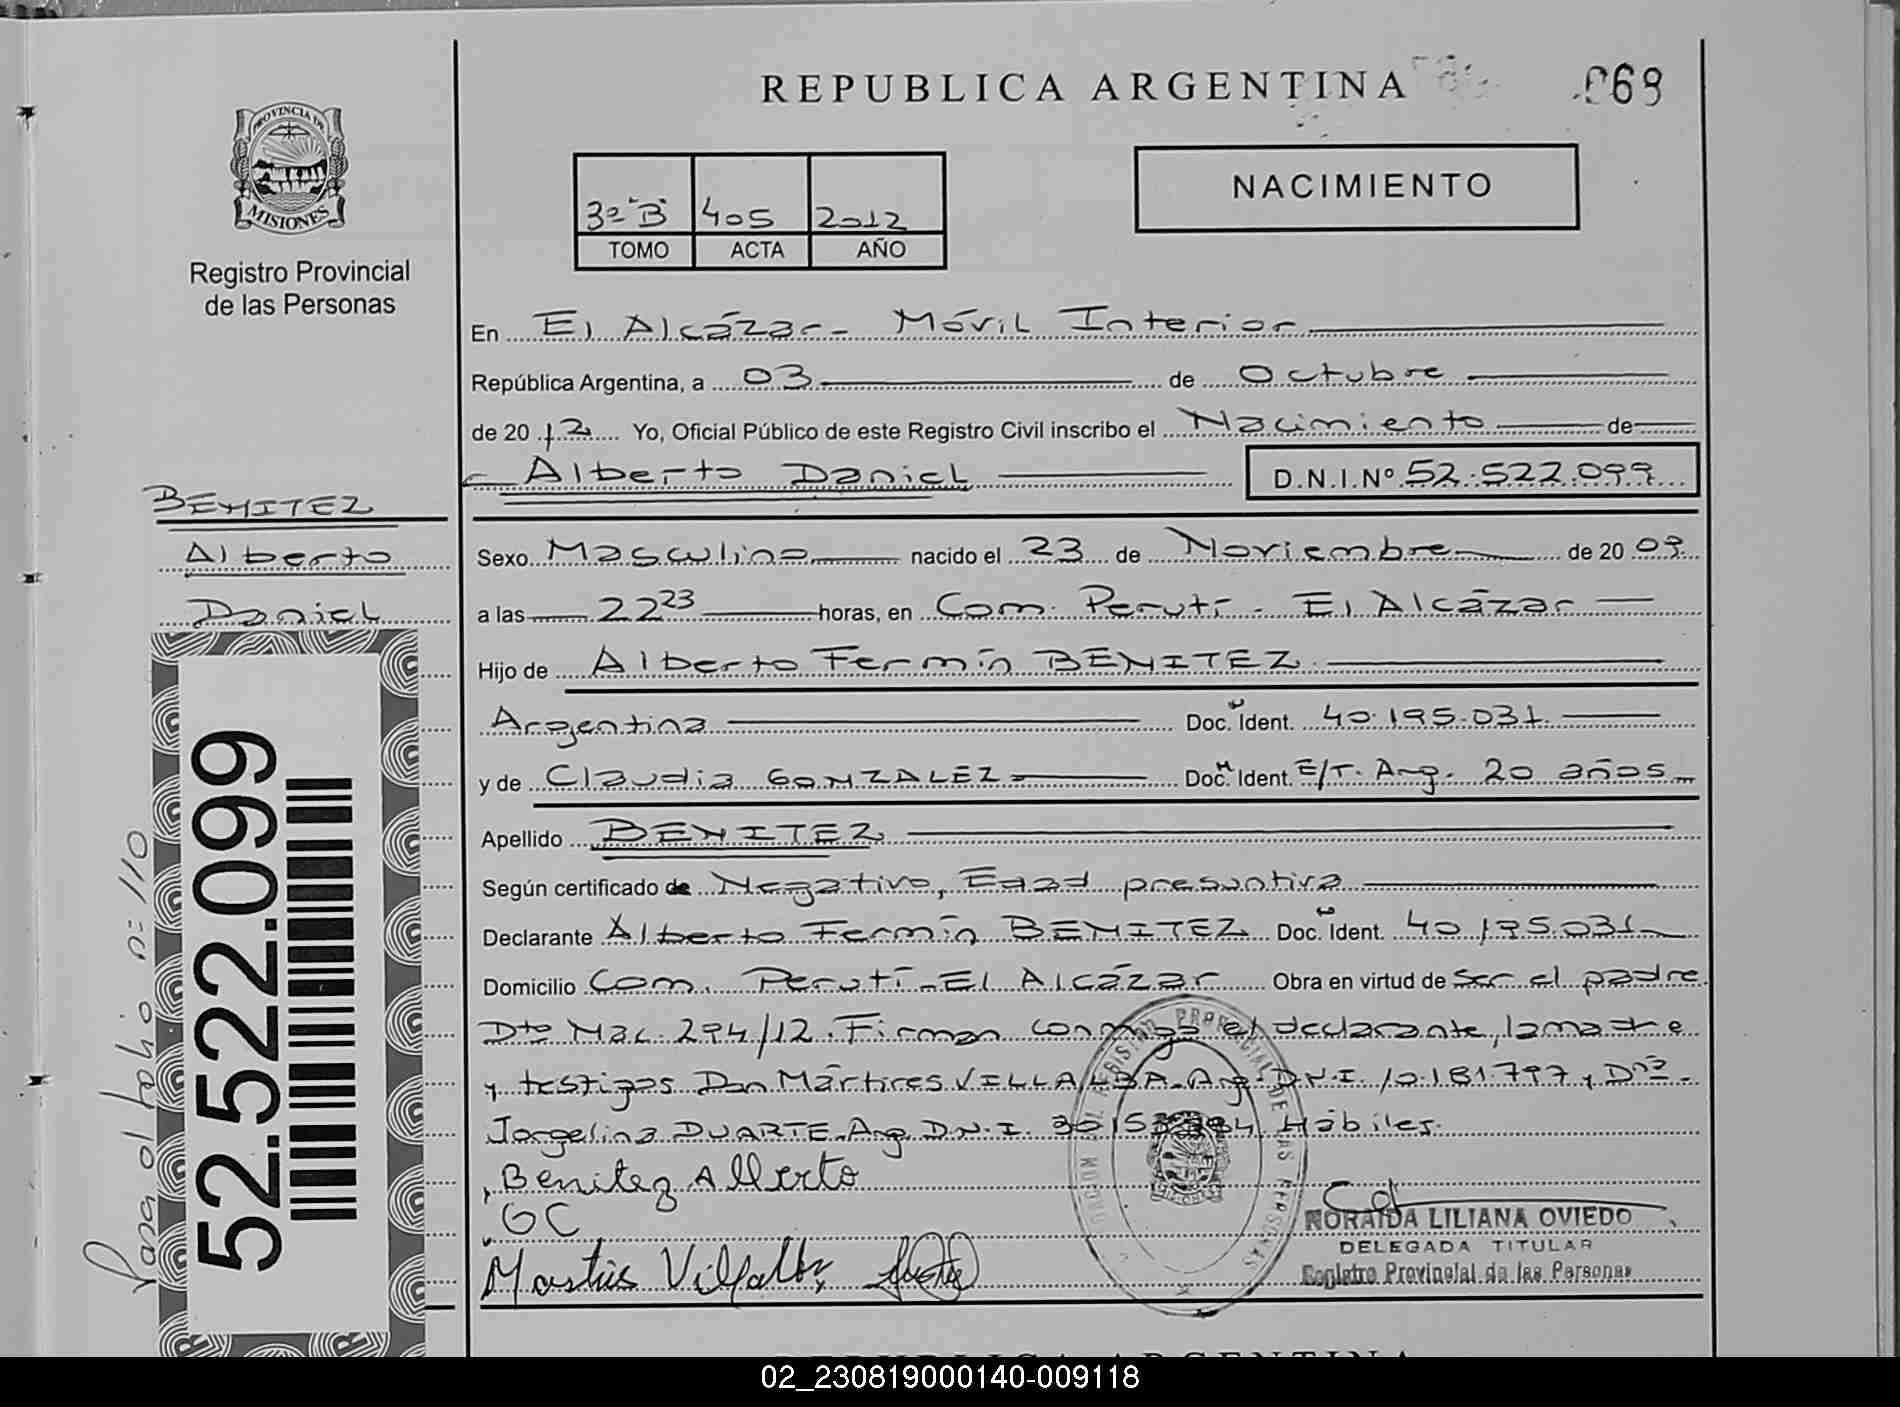 REPUBLICA ARGENTINA
068
PROVINCIA DE
MISIONES
Registro Provincial
de las Personas
NACIMIENTO
3º "B" 405 2012
TOMO ACTA AÑO
En El Alcázar - Móvil Interior
República Argentina, a 03 de Octubre
de 20 12 Yo, Oficial Público de este Registro Civil inscribo el Nacimiento de
Alberto Daniel D.N.I.Nº 52.522.099
BENITEZ
Alberto
Daniel
Sexo Masculino nacido el 23 de Noviembre de 20 09
a las 22 23 horas, en Com. Perutí - El Alcázar
Hijo de Alberto Fermín BENITEZ
Argentina Doc. Ident. 40.195.031
y de Claudia GONZALEZ Doc. Ident. E/T. Arg. 20 años
Apellido BENITEZ
Según certificado de Negativo, Edad presuntiva
Declarante Alberto Fermín BENITEZ Doc. Ident. 40.195.031
Domicilio Com. Perutí - El Alcázar Obra en virtud de ser el padre
Dto Mac. 294/12. Firman conmigo el declarante, la madre
y testigos Don Mártires VILLALBA - Arg. D.N.I. 10.181.797 y Dña
Jorgelina DUARTE - Arg. D.N.I. Hábiles.
Benitez Alberto
GC
Villalba
NORAIDA LILIANA OVIEDO
DELEGADA TITULAR
Registro Provincial de las Personas
52.522.099
Pasa al folio nº 110
REPUBLICA ARGENTINA
02_230819000140-009118